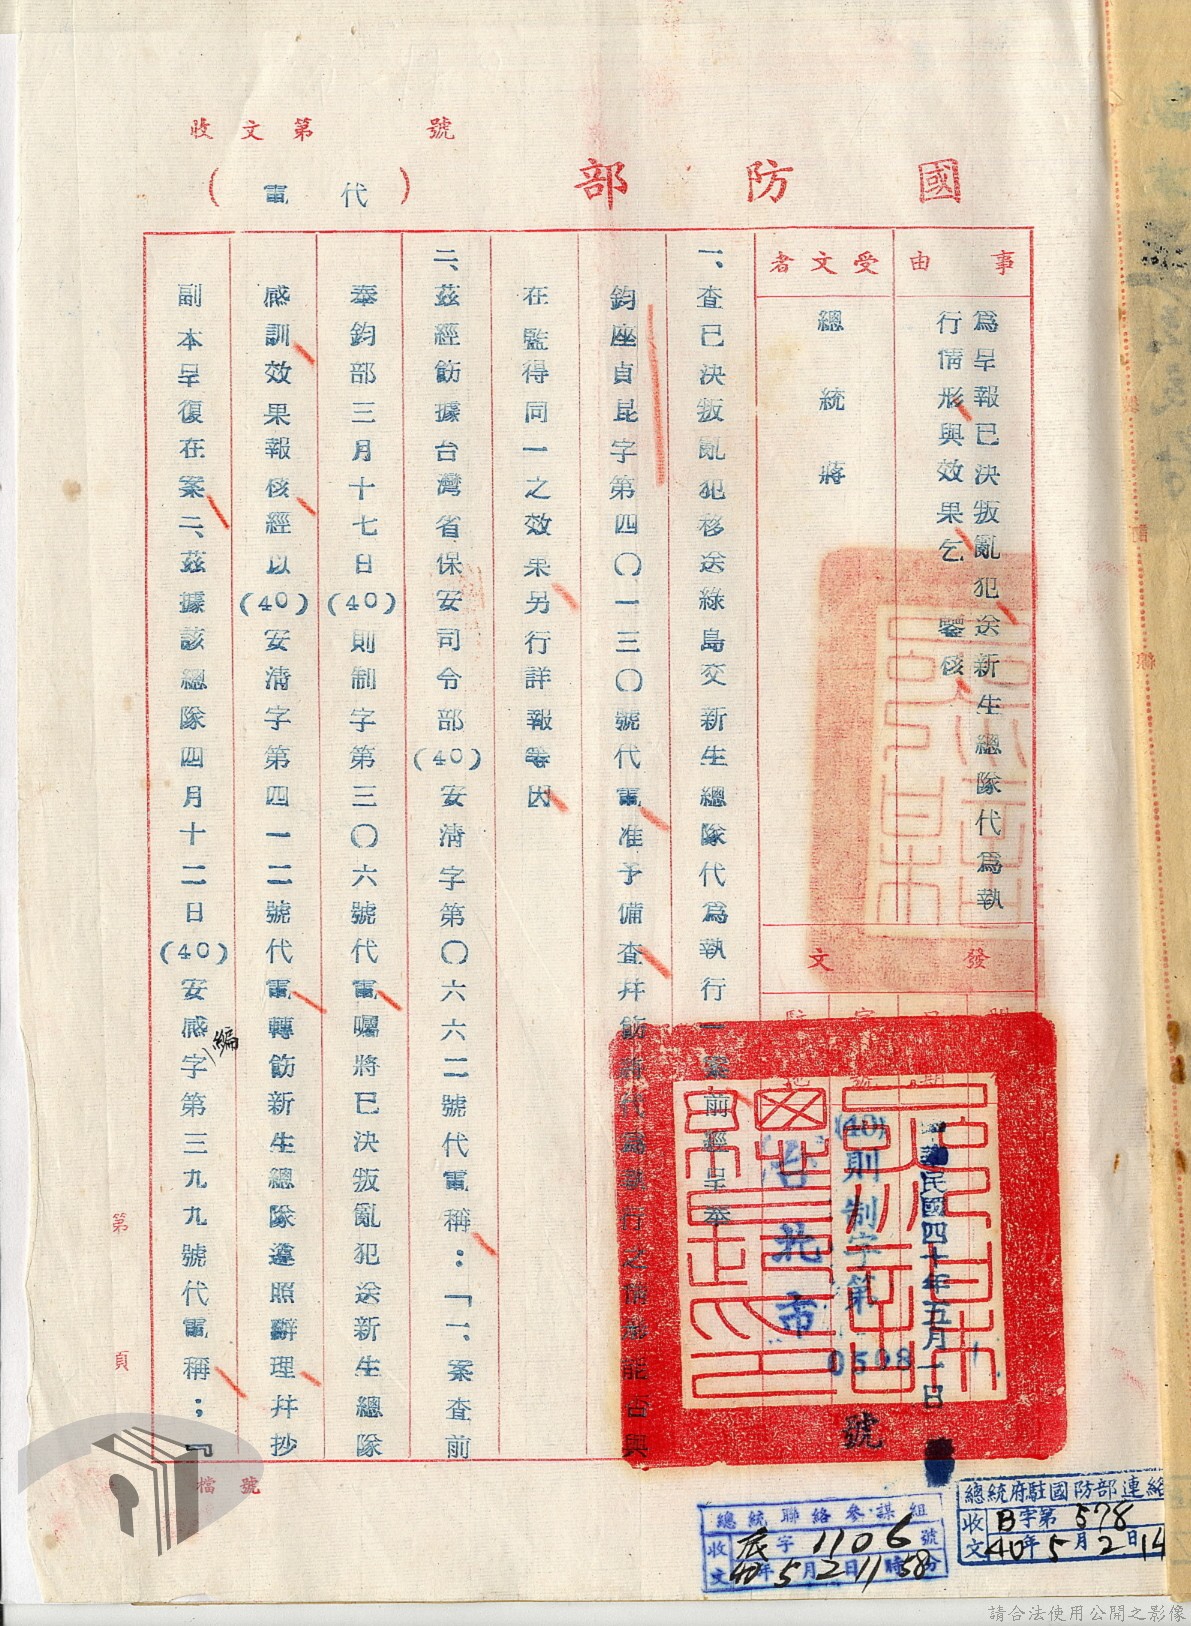 收文第　號
國防部
（代電）
事由
為呈報已決叛亂犯送新生總隊代為執
行情形與效果乞　鑒核
受文者
總統　蔣
發文
中華民國四十年五月一日
(40)則制字第0598號
台北市
一、查已決叛亂犯移送綠島交新生總隊代為執行一案前經呈奉
鈞座貞昆字第四〇一三〇號代電准予備查幷飭將代為執行之情形能否與
在監得同一之效果另行詳報等因
二、茲經飭據台灣省保安司令部(40)安清字第〇六六二號代電稱：「一、案查前
奉鈞部三月十七日(40)則制字第三〇六號代電囑將已決叛亂犯送新生總隊
感訓效果報核經以(40)安清字第四一二號代電轉飭新生總隊遵照辦理幷抄
副本呈復在案二、茲據該總隊四月十二日(40)安感字第三九九號代電稱；『
編
第　頁
檔號
總統聯絡參謀組
收文 底字1106號
40年5月2日11時58分
總統府駐國防部連絡
收文 B字第578
40年5月2日14
請合法使用公開之影像